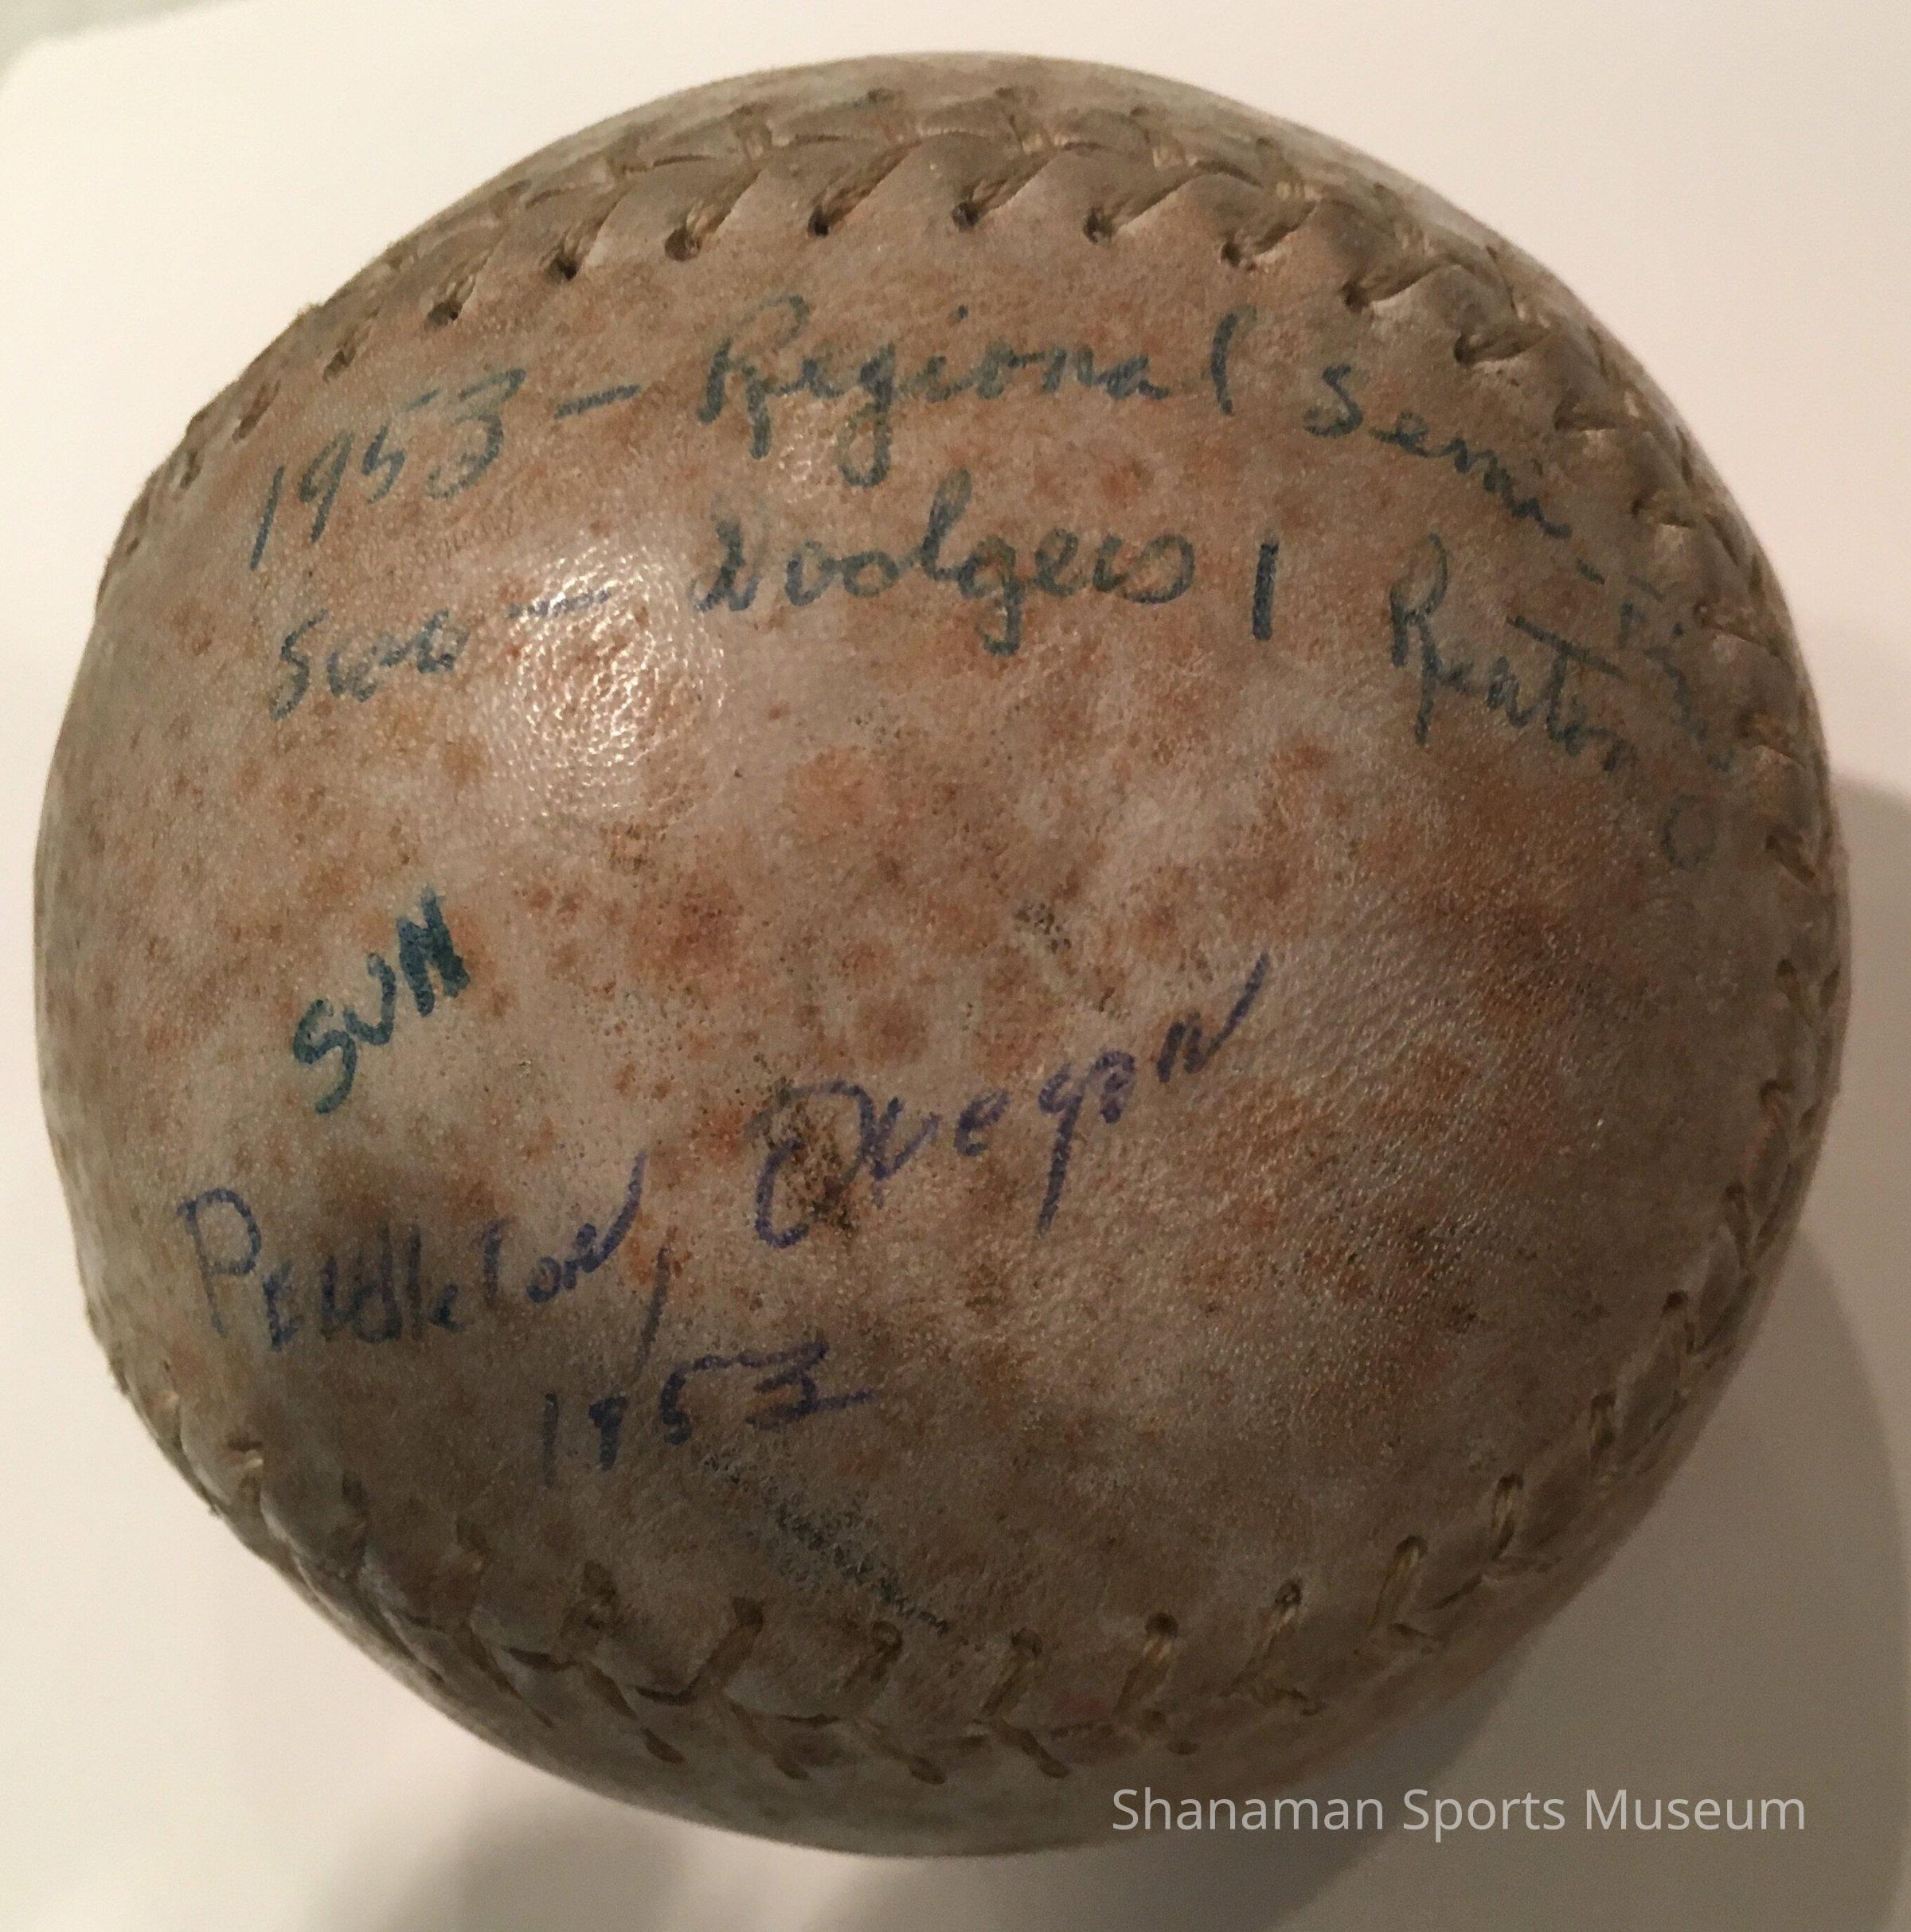 1953 - Regional Semi-Finals
Dodgers 1 Renton 0
SUN
Pendleton, Oregon
1953
Shanaman Sports Museum